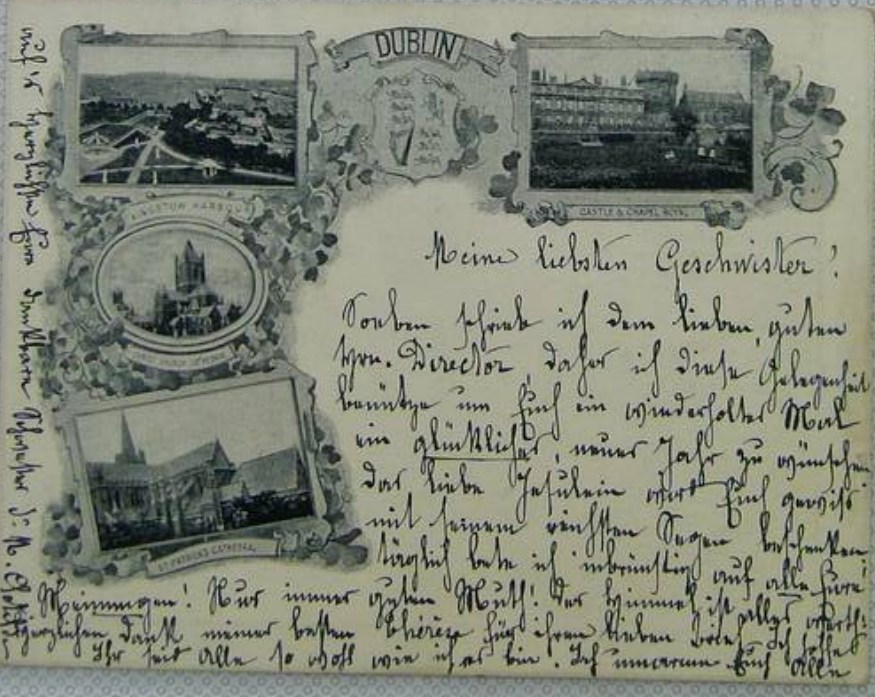 DUBLIN
KINGSTOWN HARBOUR
CASTLE & CHAPEL ROYAL
CHRIST CHURCH CATHEDRAL
ST PATRICKS CATHEDRAL
Meine liebsten Geschwister!
Soeben schrieb ich dem lieben, guten
Hrn. Director, daher ich diese Gelegenheit
benütze um Euch ein wiederholtes Mal
ein glückliches, neues Jahr zu wünschen
Das liebe Jesulein wird Euch gewiss
mit seinem reichsten Segen beschenken
täglich bete ich inbrünstig auf alle Eure
Meinungen! Nur immer guten Muth! Der Himmel ist alles werth!
Herzlichen Dank meiner besten Thérèse für ihren lieben Brief. Ich hoffe
Ihr seid alle so wohl wie ich es bin. Ich umarme Euch alle
auf's herzlichste Eure dankbare Schwester